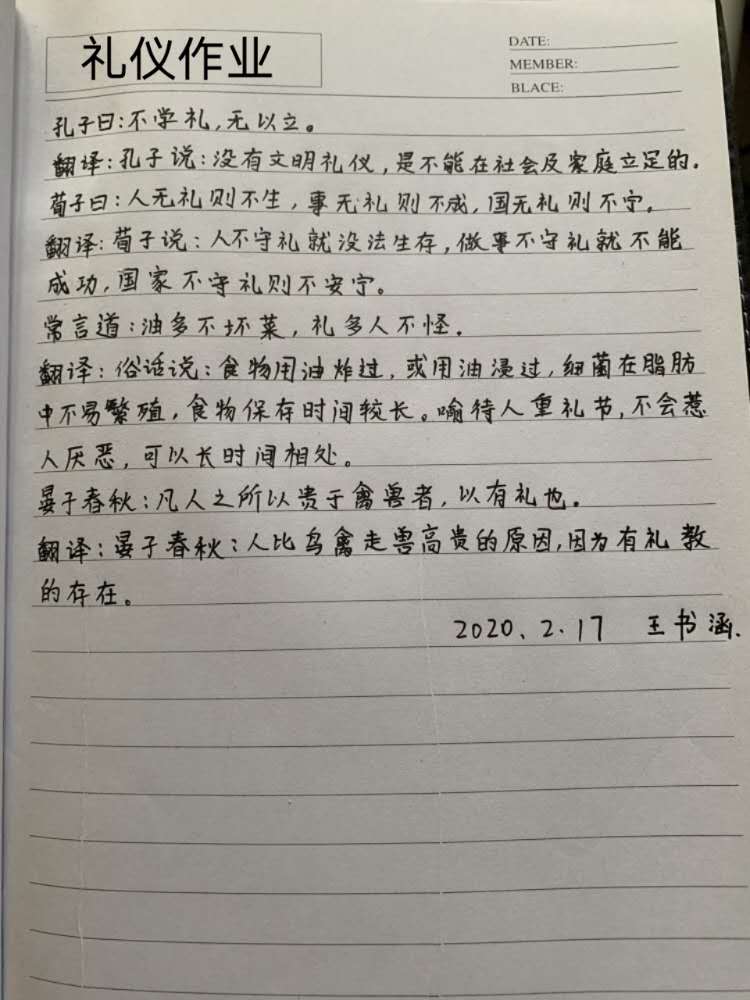 礼仪作业
DATE:
MEMBER:
BLACE:
孔子曰:不学礼,无以立。
翻译:孔子说:没有文明礼仪,是不能在社会及家庭立足的.
荀子曰:人无礼则不生,事无礼则不成,国无礼则不宁。
翻译:荀子说:人不守礼就没法生存,做事不守礼就不能
成功,国家不守礼则不安宁。
常言道:油多不坏菜,礼多人不怪.
翻译:俗话说:食物用油炸过,或用油浸过,细菌在脂肪
中不易繁殖,食物保存时间较长。喻待人重礼节,不会惹
人厌恶,可以长时间相处。
晏子春秋:凡人之所以贵于禽兽者,以有礼也.
翻译:晏子春秋:人比鸟禽走兽高贵的原因,因为有礼教
的存在。
2020、2.17 王书涵.